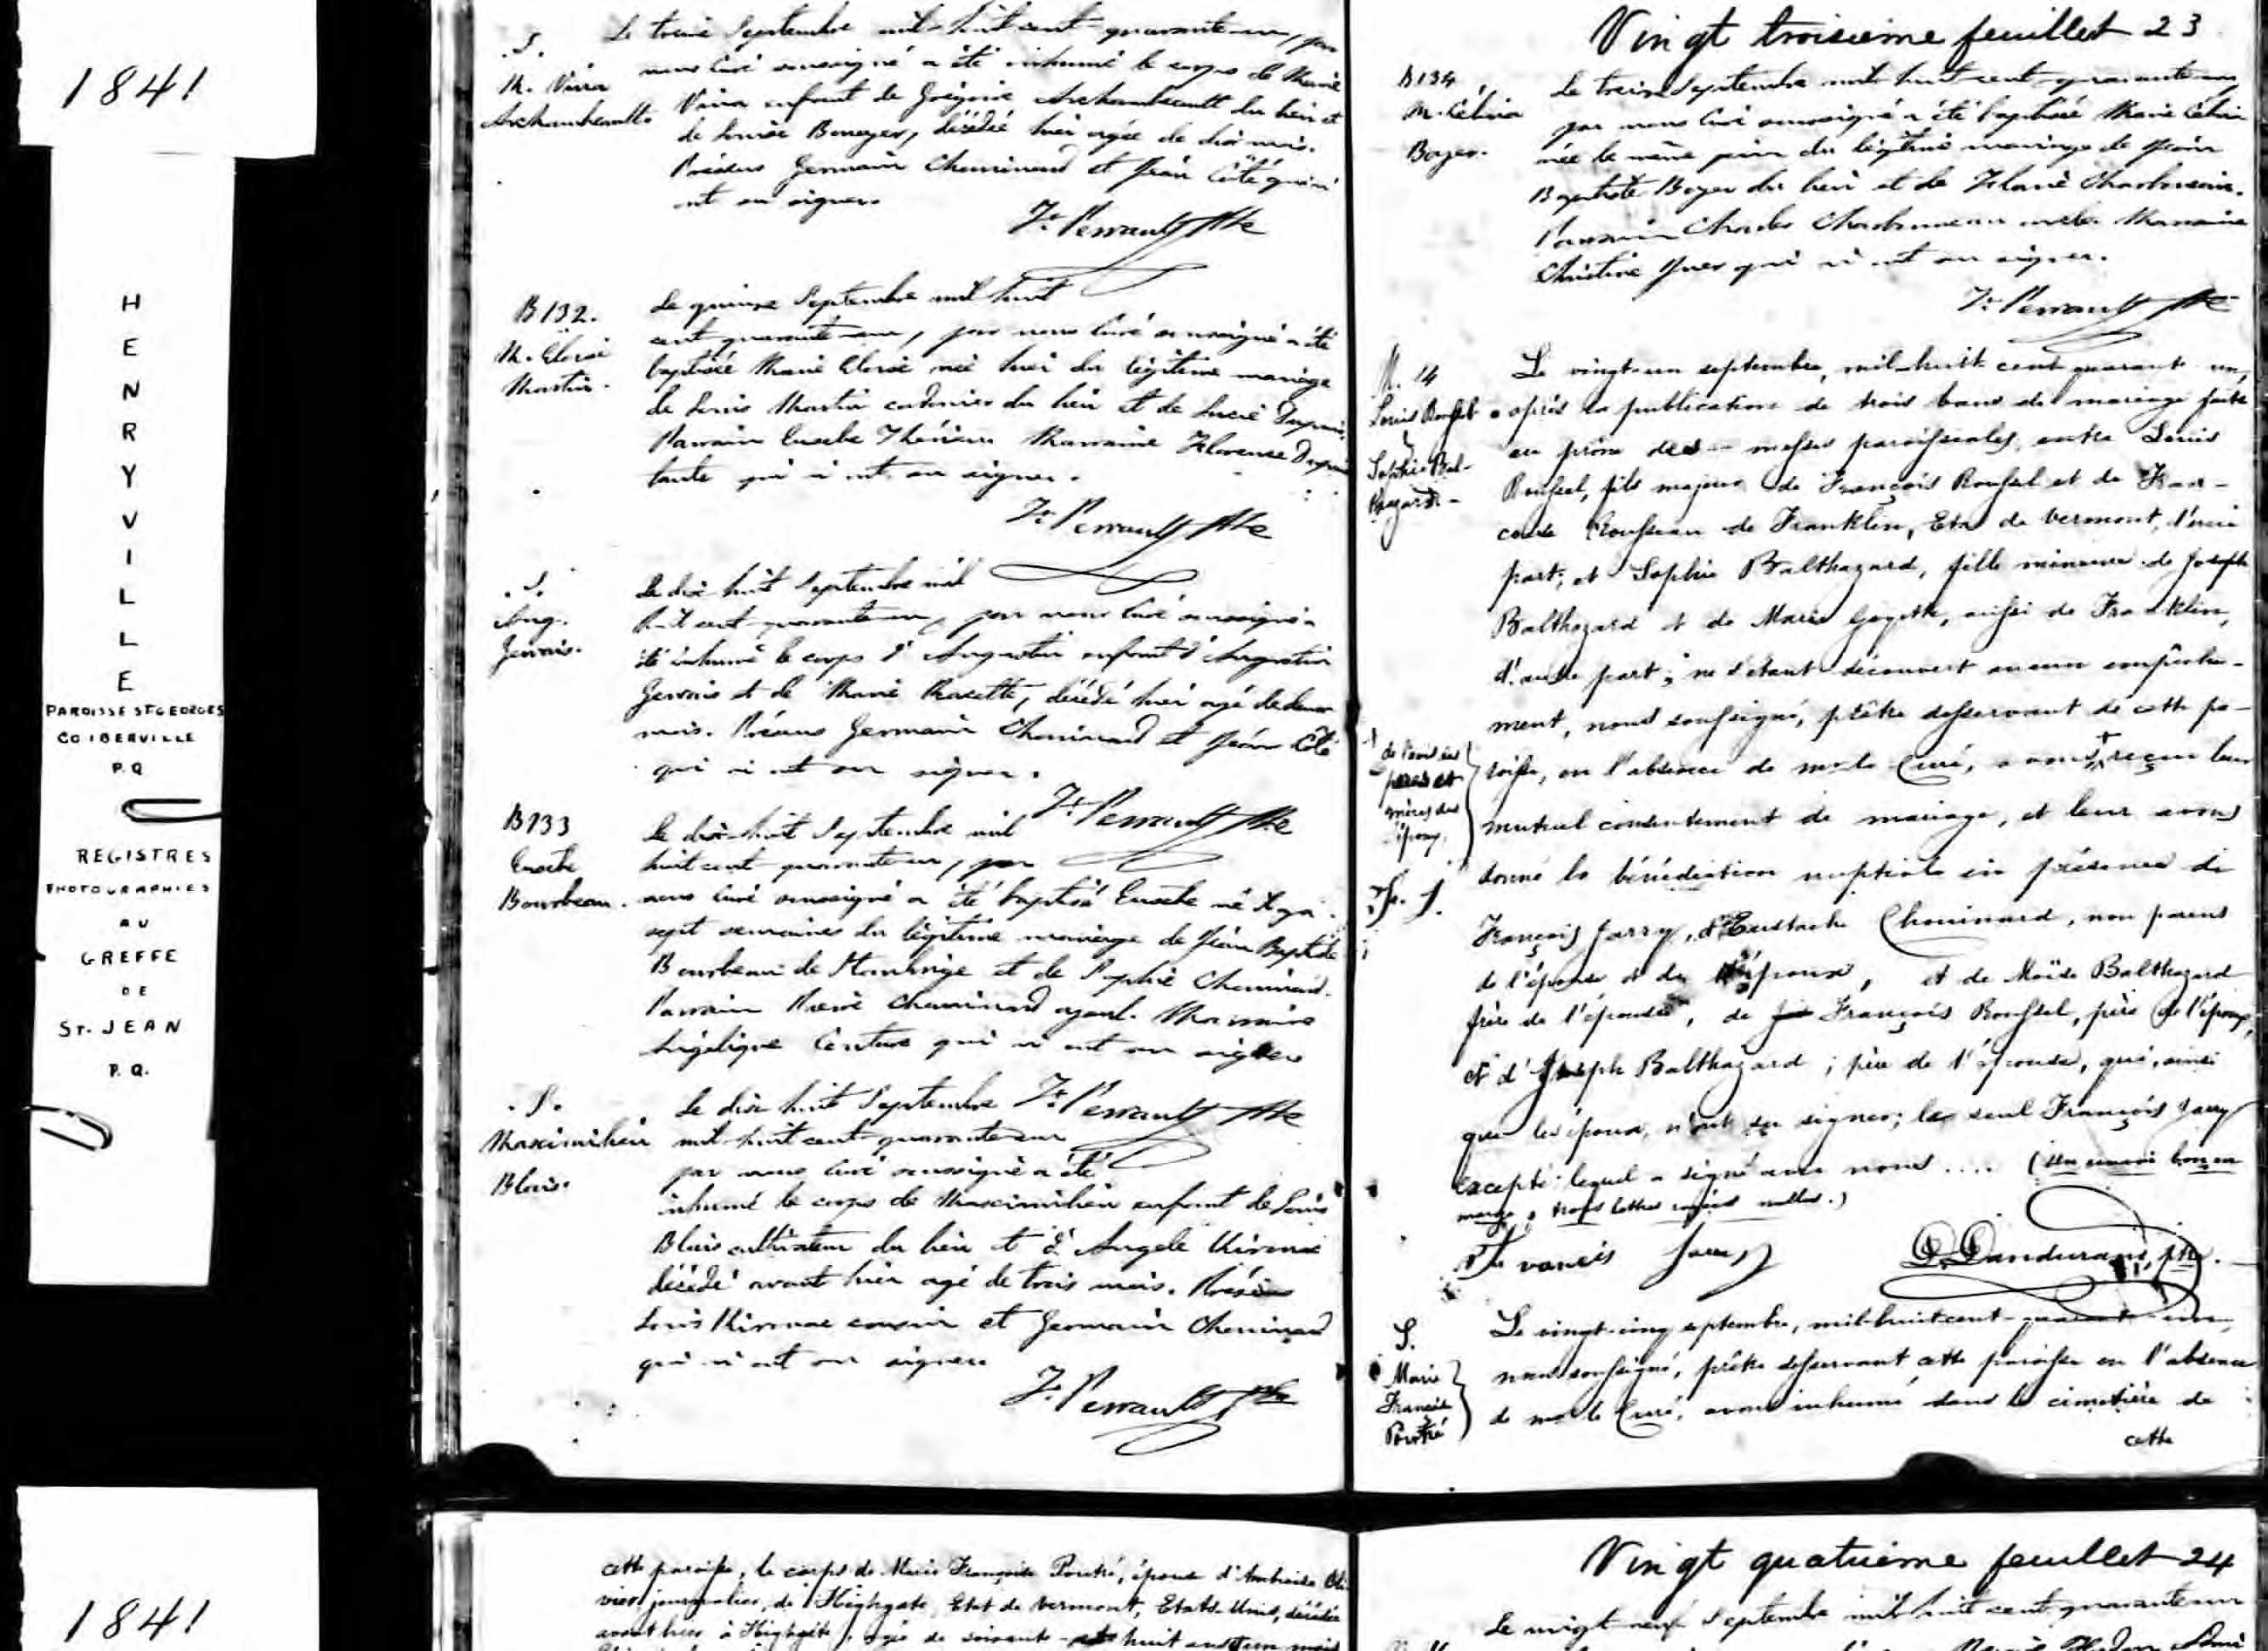 1841
HENRYVILLE
PAROISSE ST GEORGES
CO IBERVILLE
P.Q
REGISTRES
PHOTOGRAPHIES
AU
GREFFE
DE
ST. JEAN
P.Q.
1841
S.
Archambeault
Le treize Septembre mil huit cent quarante-un, par
nous Curé soussigné a été inhumé le corps de Marie
enfant de Grégoire Archambeault du lieu et
de Louise décédée hier agée de dix mois.
Présens Germain Chouinard et Jean Côté qui n'
ont su signer.
Fr. Perrault Ptre
B132.
M. Eloise
Martin.
Le quinze Septembre mil huit
cent quarante-un, par nous Curé soussigné a été
baptisée Marie Eloise née hier du légitime mariage
de Louis Martin cordonier du lieu et de Lucie
Parrain Eusebe Marraine Florence
tante qui n'ont su signer.
Fr. Perrault Ptre
S.
Aug.
Gervais.
Le dix huit Septembre mil
huit cent quarante-un, par nous Curé soussigné a
été inhumé le corps d'Augustin enfant d'Augustin
Gervais et de Marie décédé hier agé de deux
mois. Présens Germain Chouinard et Jean Côté
qui n'ont su signer.
Fr. Perrault Ptre
B133
Eusebe
Bourbeau.
Le dix-huit Septembre mil
huit cent quarante-un, par
nous Curé soussigné a été baptisé Eusebe né il y a
sept semaines du légitime mariage de Jean Baptiste
Bourbeau de Stanbrige et de Sophie Chouinard.
Parrain Chouinard Marraine
Angélique Couture qui n'ont su signer
Fr. Perrault Ptre
S.
Maximilien
Blais.
Le dix huit Septembre
mil-huit cent quarante-un
par nous Curé soussigné a été
inhumé le corps de Maximilien enfant de Louis
Blais cultivateur du lieu et d'Angele
décédé avant hier agé de trois mois. Présens
Louis cousin et Germain Chouinard
qui n'ont su signer.
Fr. Perrault Ptre
Vingt troisième feuillet 23
B134
M. Célina
Boyer.
Le treize Septembre mil huit cent quarante-un
par nous Curé soussigné a été baptisée Marie Célina
née le même jour du légitime mariage de Jean
Baptiste Boyer du lieu et de Charbonneau.
Parrain Charles Charbonneau Marraine
Christine qui n'ont su signer.
Fr. Perrault Ptre
M. 14
Louis Roussel
Sophie Bal-
thazard.
Le vingt-un septembre, mil-huit-cent quarante-un,
après la publication de trois bans de mariage faite
au prône des messes paroissiales, entre Louis
Roussel, fils majeur de François Roussel et de Fran-
çoise Rousseau de Franklin, Etat de Vermont, d'une
part, et Sophie Balthazard, fille mineure de Joseph
Balthazard et de Marie Goyette, aussi de Franklin,
d'autre part; ne s'étant découvert aucun empêche-
ment, nous soussigné, prêtre desservant de cette pa-
roisse, en l'absence de mr le Curé, avons reçu leur
de l'avis des
pères et
mères des
époux.
mutuel consentement de mariage, et leur avons
donné la bénédiction nuptiale en présence de
François Jarry, d'Eustache Chouinard, non parens
de l'épouse et de l'époux, et de Moïse Balthazard
frère de l'épouse, de François Roussel, père de l'époux,
et d'Joseph Balthazard, père de l'épouse, qui, ainsi
que les époux, n'ont su signer; le seul François Jarry
excepté lequel a signé avec nous .... (Un renvoi bon en
marge, trois lettres rayées nulles.)
François Jarry
Dandurand, ptre.
S.
Marie
Françoise
Poutré
Le vingt-cinq septembre, mil-huit-cent-quarante-un,
nous soussigné, prêtre desservant cette paroisse en l'absence
de mr le Curé, avons inhumé dans le cimetière de
cette
cette paroisse, le corps de Marie Françoise Poutré, épouse d'Ambroise Oli-
vier journalier, de Highgate, Etat de Vermont, Etats-Unis, décédée
avant hier à Highgate, agée de soixante-huit ans
Vingt quatrième feuillet 24
Le vingt neuf Septembre mil huit cent quarante-un